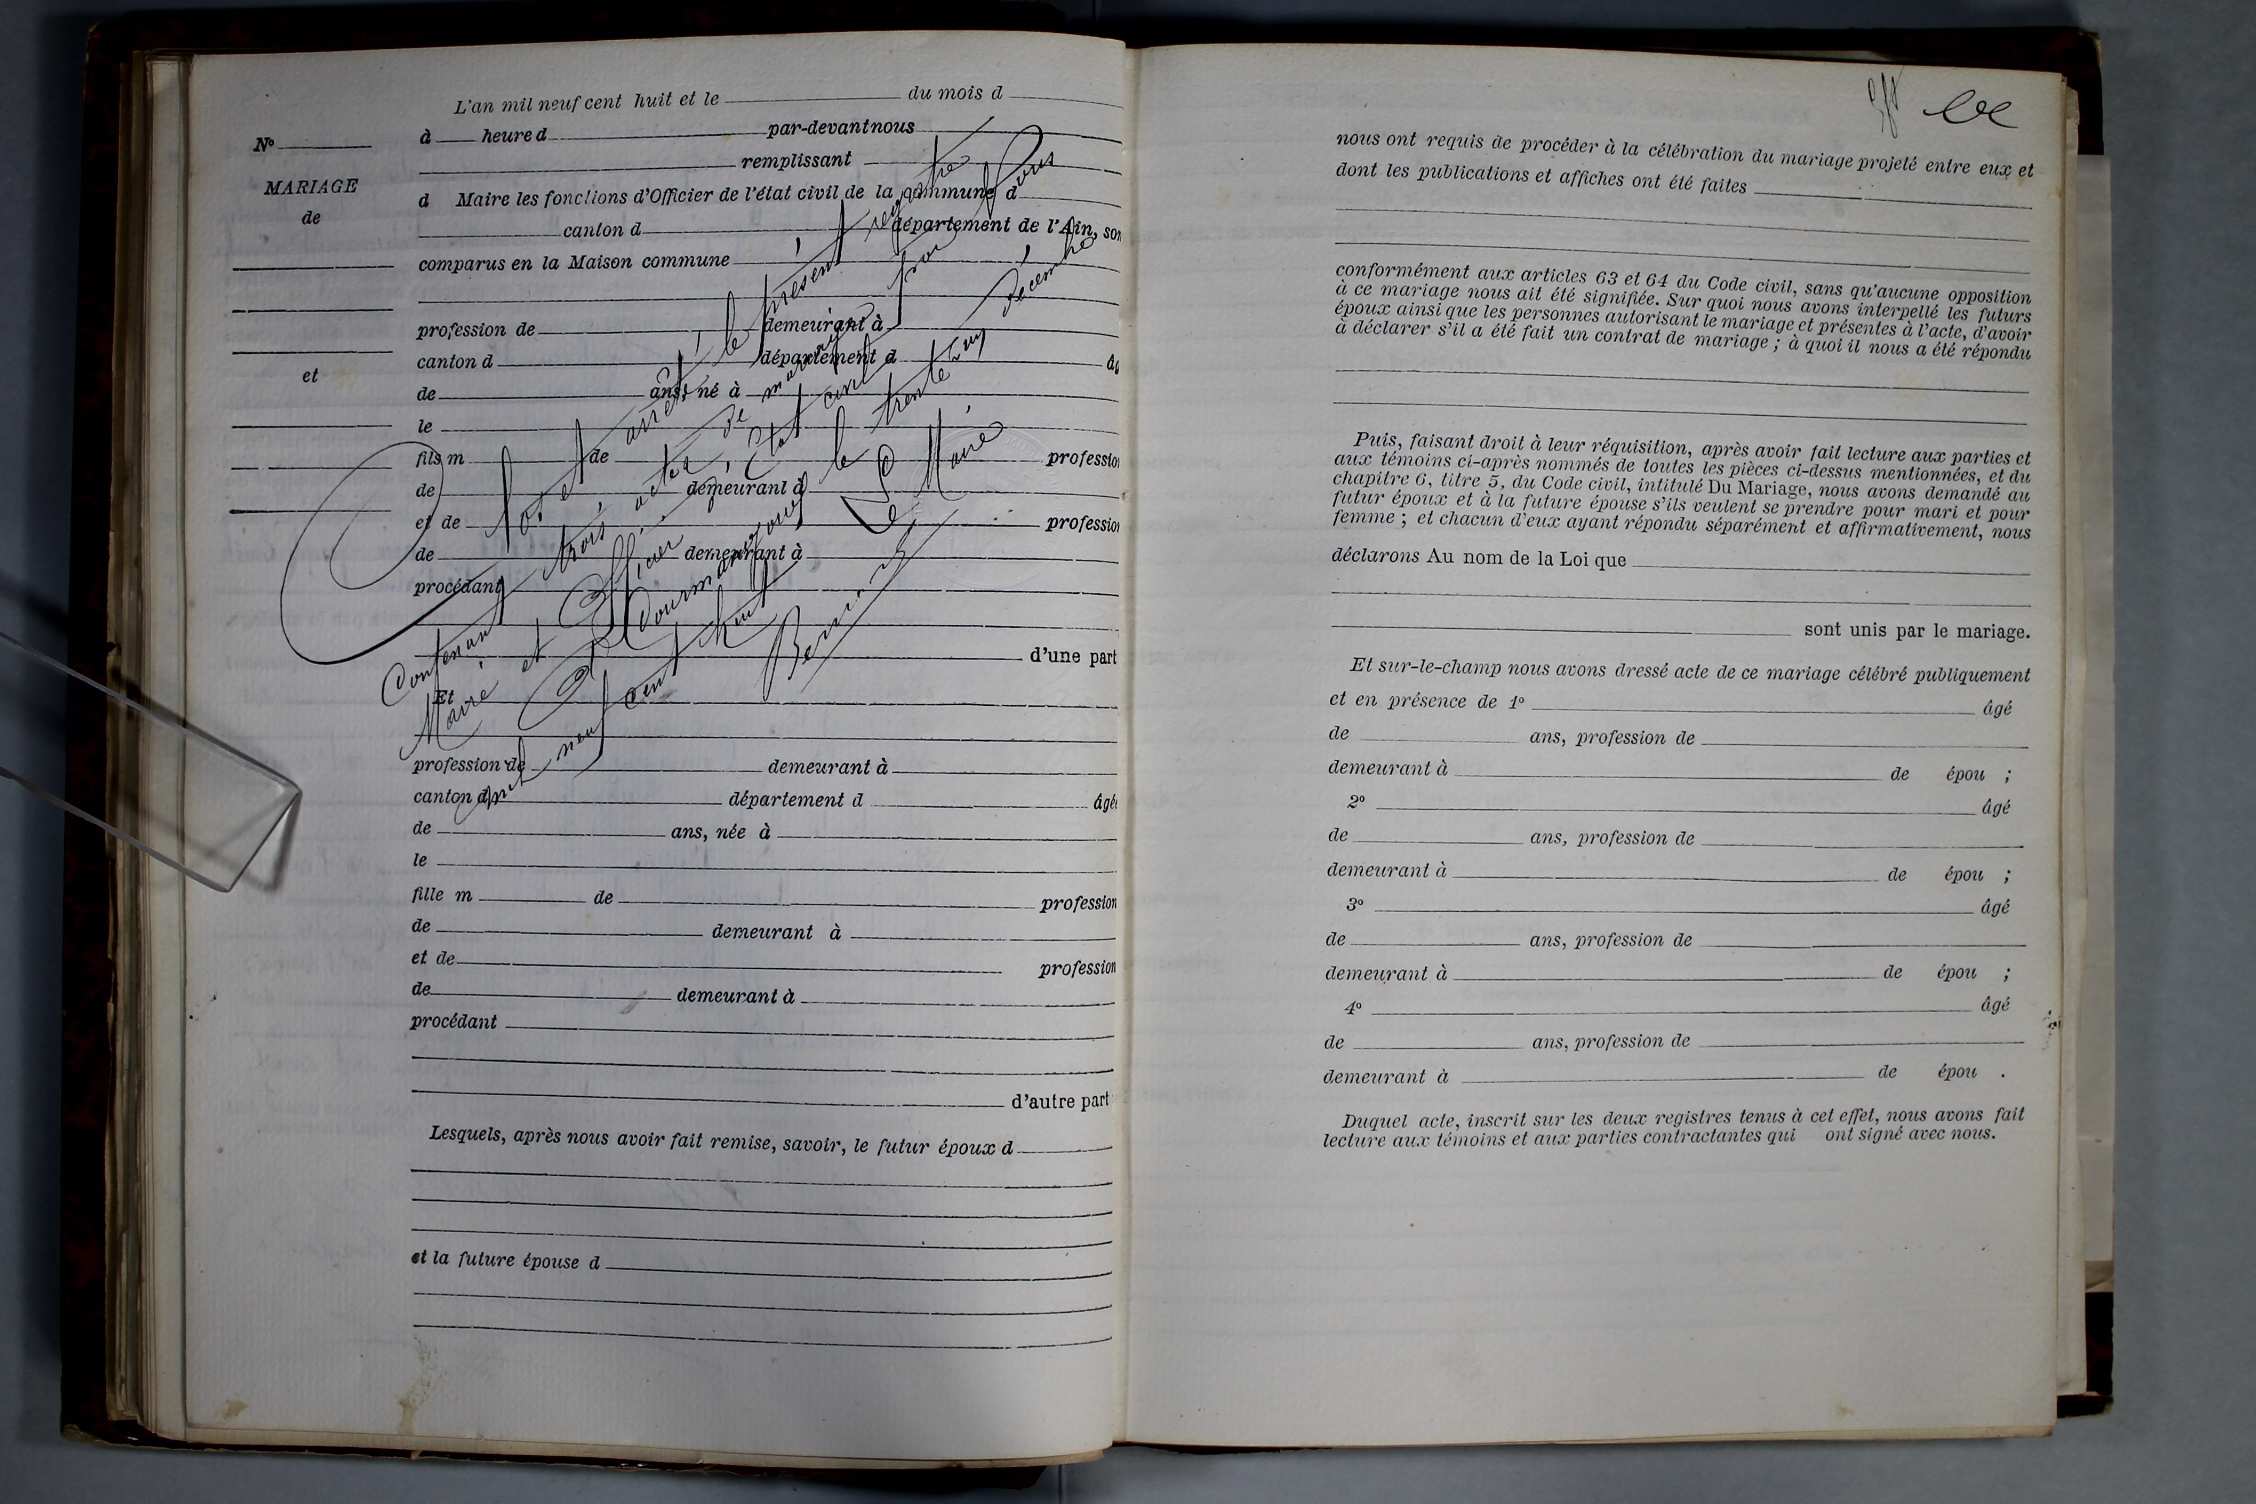 L'an mil neuf cent huit et le du mois d
N° à heure d par-devant nous
remplissant
MARIAGE
d Maire les fonctions d'Officier de l'état civil de la commune d
de
canton d département de l'Ain, son
comparus en la Maison commune
profession de demeurant à
canton d département d
et
de ans, né à
le
fils m de profession
de demeurant à
et de profession
de demeurant à
procédant
d'une part
Et
profession de demeurant à
canton d département d âgé
de ans, née à
le
fille m de profession
de demeurant à
et de profession
de demeurant à
procédant
d'autre part
Lesquels, après nous avoir fait remise, savoir, le futur époux d
et la future épouse d
Clos et arrêté le présent registre
Contenant trois actes de mariage par nous
Maire et Officier de l'Etat civil
le trente un décembre
mil neuf cent huit
Le Maire
nous ont requis de procéder à la célébration du mariage projeté entre eux et
dont les publications et affiches ont été faites
conformément aux articles 63 et 64 du Code civil, sans qu'aucune opposition
à ce mariage nous ait été signifiée. Sur quoi nous avons interpellé les futurs
époux ainsi que les personnes autorisant le mariage et présentes à l'acte, d'avoir
à déclarer s'il a été fait un contrat de mariage ; à quoi il nous a été répondu
Puis, faisant droit à leur réquisition, après avoir fait lecture aux parties et
aux témoins ci-après nommés de toutes les pièces ci-dessus mentionnées, et du
chapitre 6, titre 5, du Code civil, intitulé Du Mariage, nous avons demandé au
futur époux et à la future épouse s'ils veulent se prendre pour mari et pour
femme ; et chacun d'eux ayant répondu séparément et affirmativement, nous
déclarons Au nom de la Loi que
sont unis par le mariage.
Et sur-le-champ nous avons dressé acte de ce mariage célébré publiquement
et en présence de 1° âgé
de ans, profession de
demeurant à de épou ;
2° âgé
de ans, profession de
demeurant à de épou ;
3° âgé
de ans, profession de
demeurant à de épou ;
4° âgé
de ans, profession de
demeurant à de épou .
Duquel acte, inscrit sur les deux registres tenus à cet effet, nous avons fait
lecture aux témoins et aux parties contractantes qui ont signé avec nous.